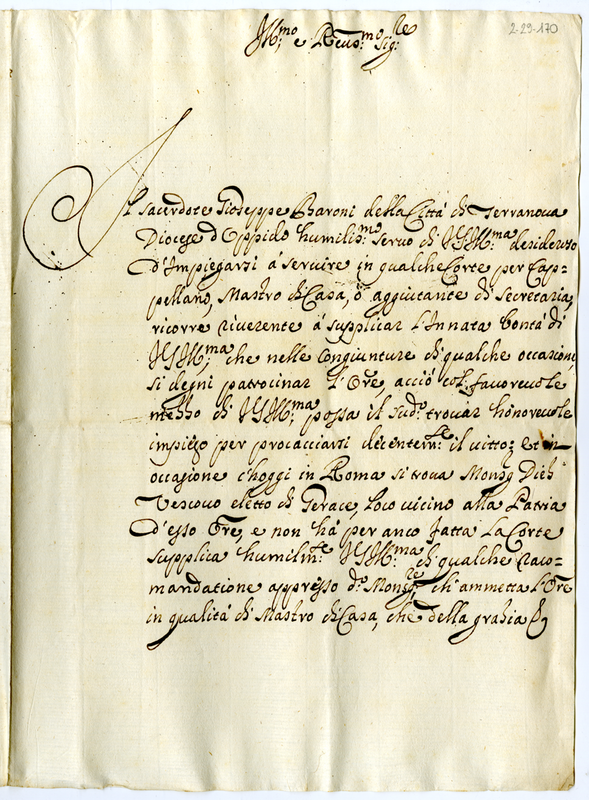 2-29-170
Ill:mo e Reuo:mo Sig:re
Il sacerdote Gioseppe Baroni della Città di Terranova
Diocese d'Oppido humiliss:mo seruo di V.S.Ill:ma desideroso
d'Impiegarsi á seruire in qualche Corte per Cap=
pellano, Mastro di Casa, ó aggiutante di Secretaria,
ricorre riuerente á supplicar l'Innata bontá di
V.S.Ill:ma, che nelle congiunture di qualche occasione,
si degni patrocinar l'Ore, acciò col fauoreuole
mezzo di V.S.Ill:ma possa il sud:o trouar honoreuole
impiego per procacciarsi decentem:te il uitto; et in
occasione c'hoggi in Roma si troua Mons:g Dieh
Vescouo eletto di Gerace, loco uicino alla Patria
d'esso Ore, e non há per anco fatta la Corte
supplica humilm:te V.S.Ill:ma di qualche raco=
mandatione appresso d:o Mons:re, ch'ammetta l'Ore
in qualitá di Mastro di Casa, che della grazia &